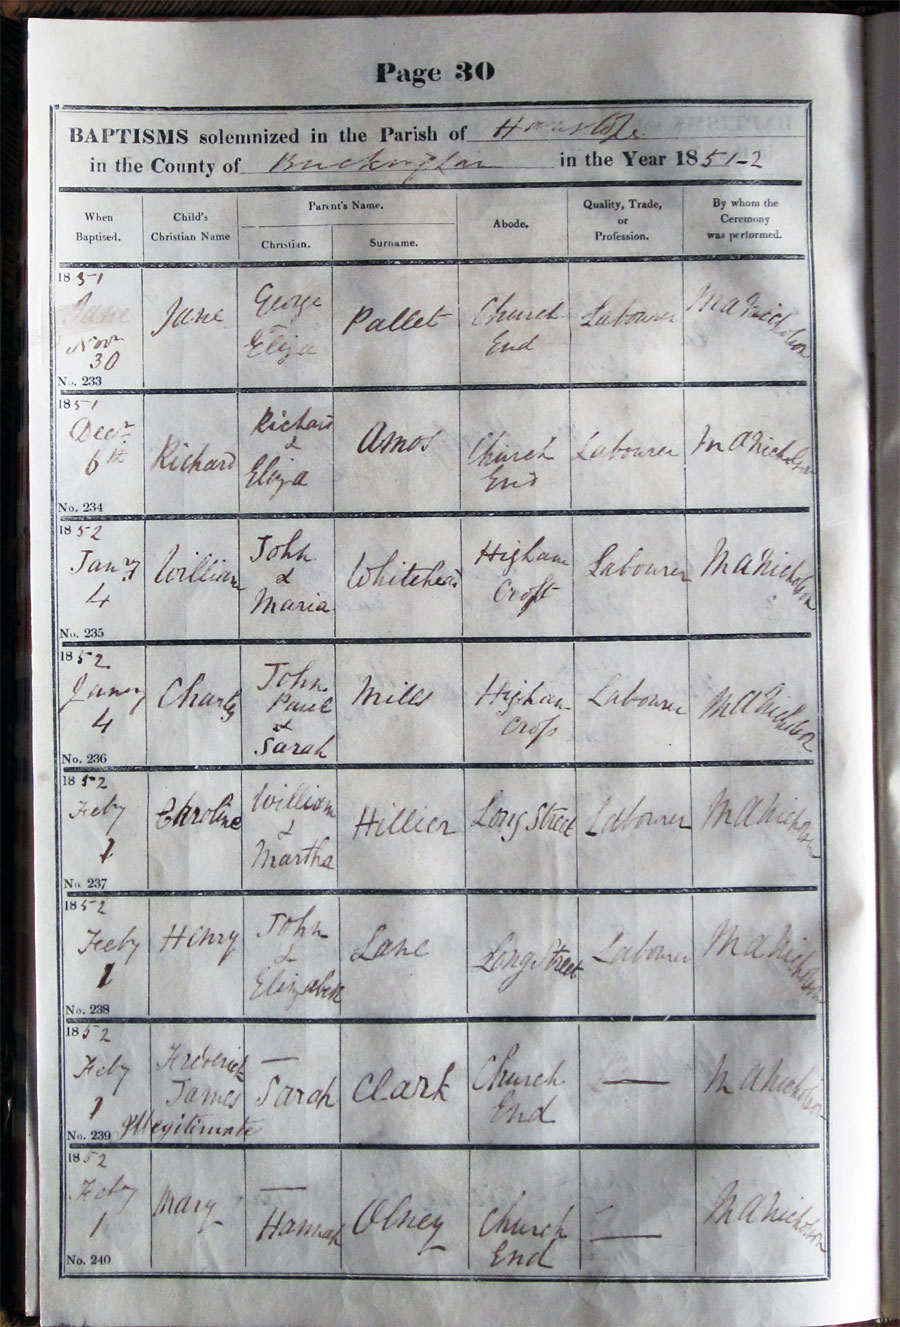 Page 30
BAPTISMS solemnized in the Parish of Hanslope
in the County of Buckingham in the Year 1851-2
When Baptised.
Child's Christian Name
Parent's Name.
Christian.
Surname.
Abode.
Quality, Trade, or Profession.
By whom the Ceremony was performed.
1851
Novr
30
No. 233
Jane
George
Eliza
Pallet
Church
End
Labourer
M A Nicholson
1851
Decr
6th
No. 234
Richard
Richard
&
Eliza
Amos
Church
End
Labourer
M A Nicholson
1852
Jany
4
No. 235
William
John
&
Maria
Whitehead
Higham
Croft
Labourer
M A Nicholson
1852
Jany
4
No. 236
Charles
John
Paul
&
Sarah
Mills
Higham
Labourer
M A Nicholson
1852
Feby
1
No. 237
Caroline
William
&
Martha
Hillier
Long Street
Labourer
M A Nicholson
1852
Feby
1
No. 238
Henry
John
&
Elizabeth
Lane
Long Street
Labourer
M A Nicholson
1852
Feby
1
No. 239
Frederick
James
Illegitimate
—
Sarah
Clark
Church
End
—
M A Nicholson
1852
Feby
1
No. 240
Mary
—
Hannah
Olney
Church
End
—
M A Nicholson